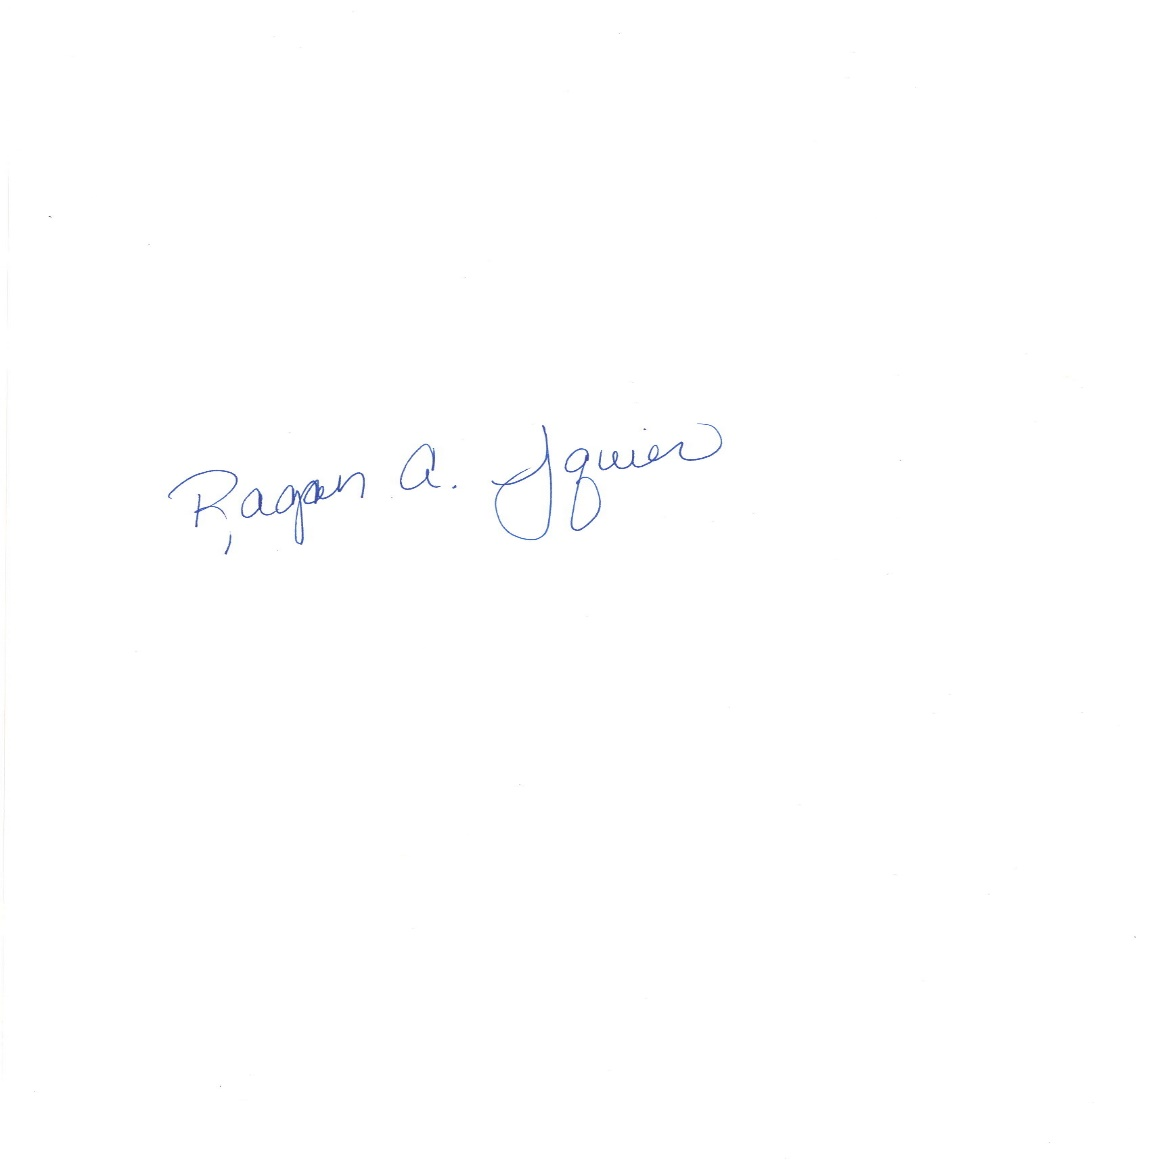 Ragan A. Squier